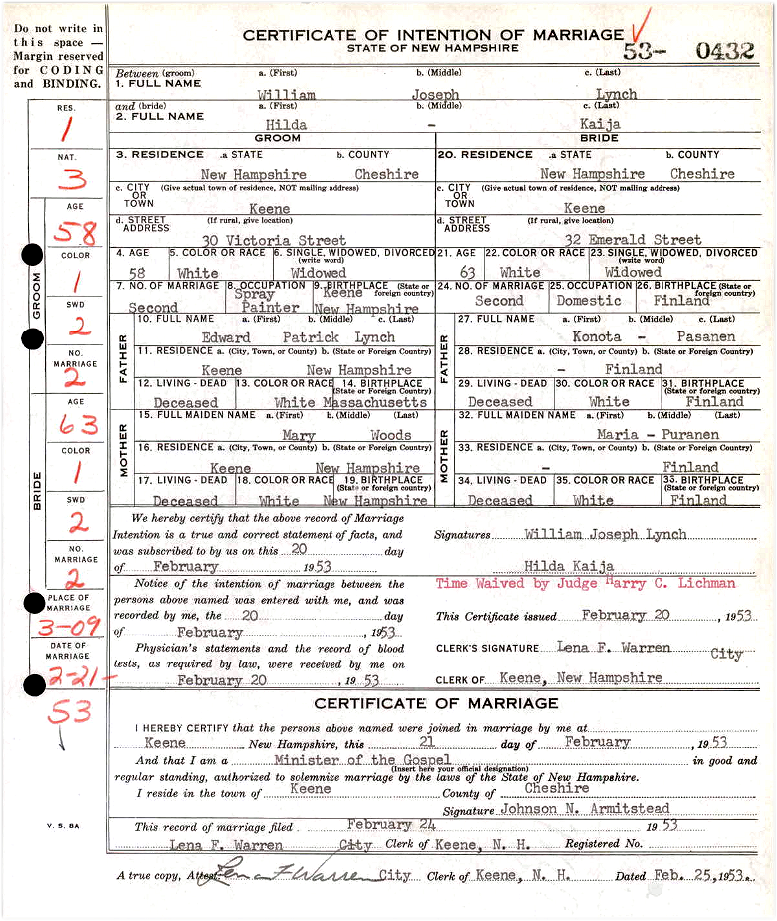 Do not write in
this space —
Margin reserved
for CODING
and BINDING.
CERTIFICATE OF INTENTION OF MARRIAGE
STATE OF NEW HAMPSHIRE
53- 0432
Between (groom) a. (First) b. (Middle) c. (Last)
1. FULL NAME William Joseph Lynch
and (bride) a. (First) b. (Middle) c. (Last)
2. FULL NAME Hilda - Kaija
GROOM BRIDE
3. RESIDENCE .a STATE b. COUNTY 20. RESIDENCE .a STATE b. COUNTY
New Hampshire Cheshire New Hampshire Cheshire
c. CITY OR TOWN (Give actual town of residence, NOT mailing address) c. CITY OR TOWN (Give actual town of residence, NOT mailing address)
Keene Keene
d. STREET ADDRESS (If rural, give location) d. STREET ADDRESS (If rural, give location)
30 Victoria Street 32 Emerald Street
4. AGE 5. COLOR OR RACE 6. SINGLE, WIDOWED, DIVORCED (write word) 21. AGE 22. COLOR OR RACE 23. SINGLE, WIDOWED, DIVORCED (write word)
58 White Widowed 63 White Widowed
7. NO. OF MARRIAGE 8. OCCUPATION 9. BIRTHPLACE (State or foreign country) 24. NO. OF MARRIAGE 25. OCCUPATION 26. BIRTHPLACE (State or foreign country)
Second Spray Painter Keene New Hampshire Second Domestic Finland
FATHER 10. FULL NAME a. (First) b. (Middle) c. (Last) FATHER 27. FULL NAME a. (First) b. (Middle) c. (Last)
Edward Patrick Lynch Konota - Pasanen
11. RESIDENCE a. (City, Town, or County) b. (State or Foreign Country) 28. RESIDENCE a. (City, Town, or County) b. (State or Foreign Country)
Keene New Hampshire - Finland
12. LIVING - DEAD 13. COLOR OR RACE 14. BIRTHPLACE (State or Foreign Country) 29. LIVING - DEAD 30. COLOR OR RACE 31. BIRTHPLACE (State or foreign country)
Deceased White Massachusetts Deceased White Finland
MOTHER 15. FULL MAIDEN NAME a. (First) b. (Middle) (Last) MOTHER 32. FULL MAIDEN NAME a. (First) b. (Middle) (Last)
Mary Woods Maria - Puranen
16. RESIDENCE a. (City, Town, or County) b. (State or Foreign Country) 33. RESIDENCE a. (City, Town, or County) b. (State or Foreign Country)
Keene New Hampshire - Finland
17. LIVING - DEAD 18. COLOR OR RACE 19. BIRTHPLACE (State or foreign country) 34. LIVING - DEAD 35. COLOR OR RACE 35. BIRTHPLACE (State or foreign country)
Deceased White New Hampshire Deceased White Finland
We hereby certify that the above record of Marriage
Intention is a true and correct statement of facts, and
was subscribed to by us on this 20 day
of February 1953
Signatures William Joseph Lynch
Hilda Kaija
Notice of the intention of marriage between the
persons above named was entered with me, and was
recorded by me, the 20 day
of February, 1953
Time Waived by Judge Harry C. Lichman
This Certificate issued February 20, 1953
Physician's statements and the record of blood
tests, as required by law, were received by me on
February 20, 1953
CLERK'S SIGNATURE Lena F. Warren City
CLERK OF Keene, New Hampshire
CERTIFICATE OF MARRIAGE
I HEREBY CERTIFY that the persons above named were joined in marriage by me at
Keene New Hampshire, this 21 day of February, 1953
And that I am a Minister of the Gospel in good and
(Insert here your official designation)
regular standing, authorized to solemnize marriage by the laws of the State of New Hampshire.
I reside in the town of Keene County of Cheshire
Signature Johnson N. Armitstead
This record of marriage filed February 24 1953
Lena F. Warren City Clerk of Keene, N. H. Registered No.
A true copy, Attest: Lena F Warren City Clerk of Keene, N. H. Dated Feb. 25, 1953.
RES.
1
NAT.
3
GROOM
AGE
58
COLOR
1
SWD
2
NO. MARRIAGE
2
BRIDE
AGE
63
COLOR
1
SWD
2
NO. MARRIAGE
2
PLACE OF MARRIAGE
3-09
DATE OF MARRIAGE
2-21-
53
V. S. 8A